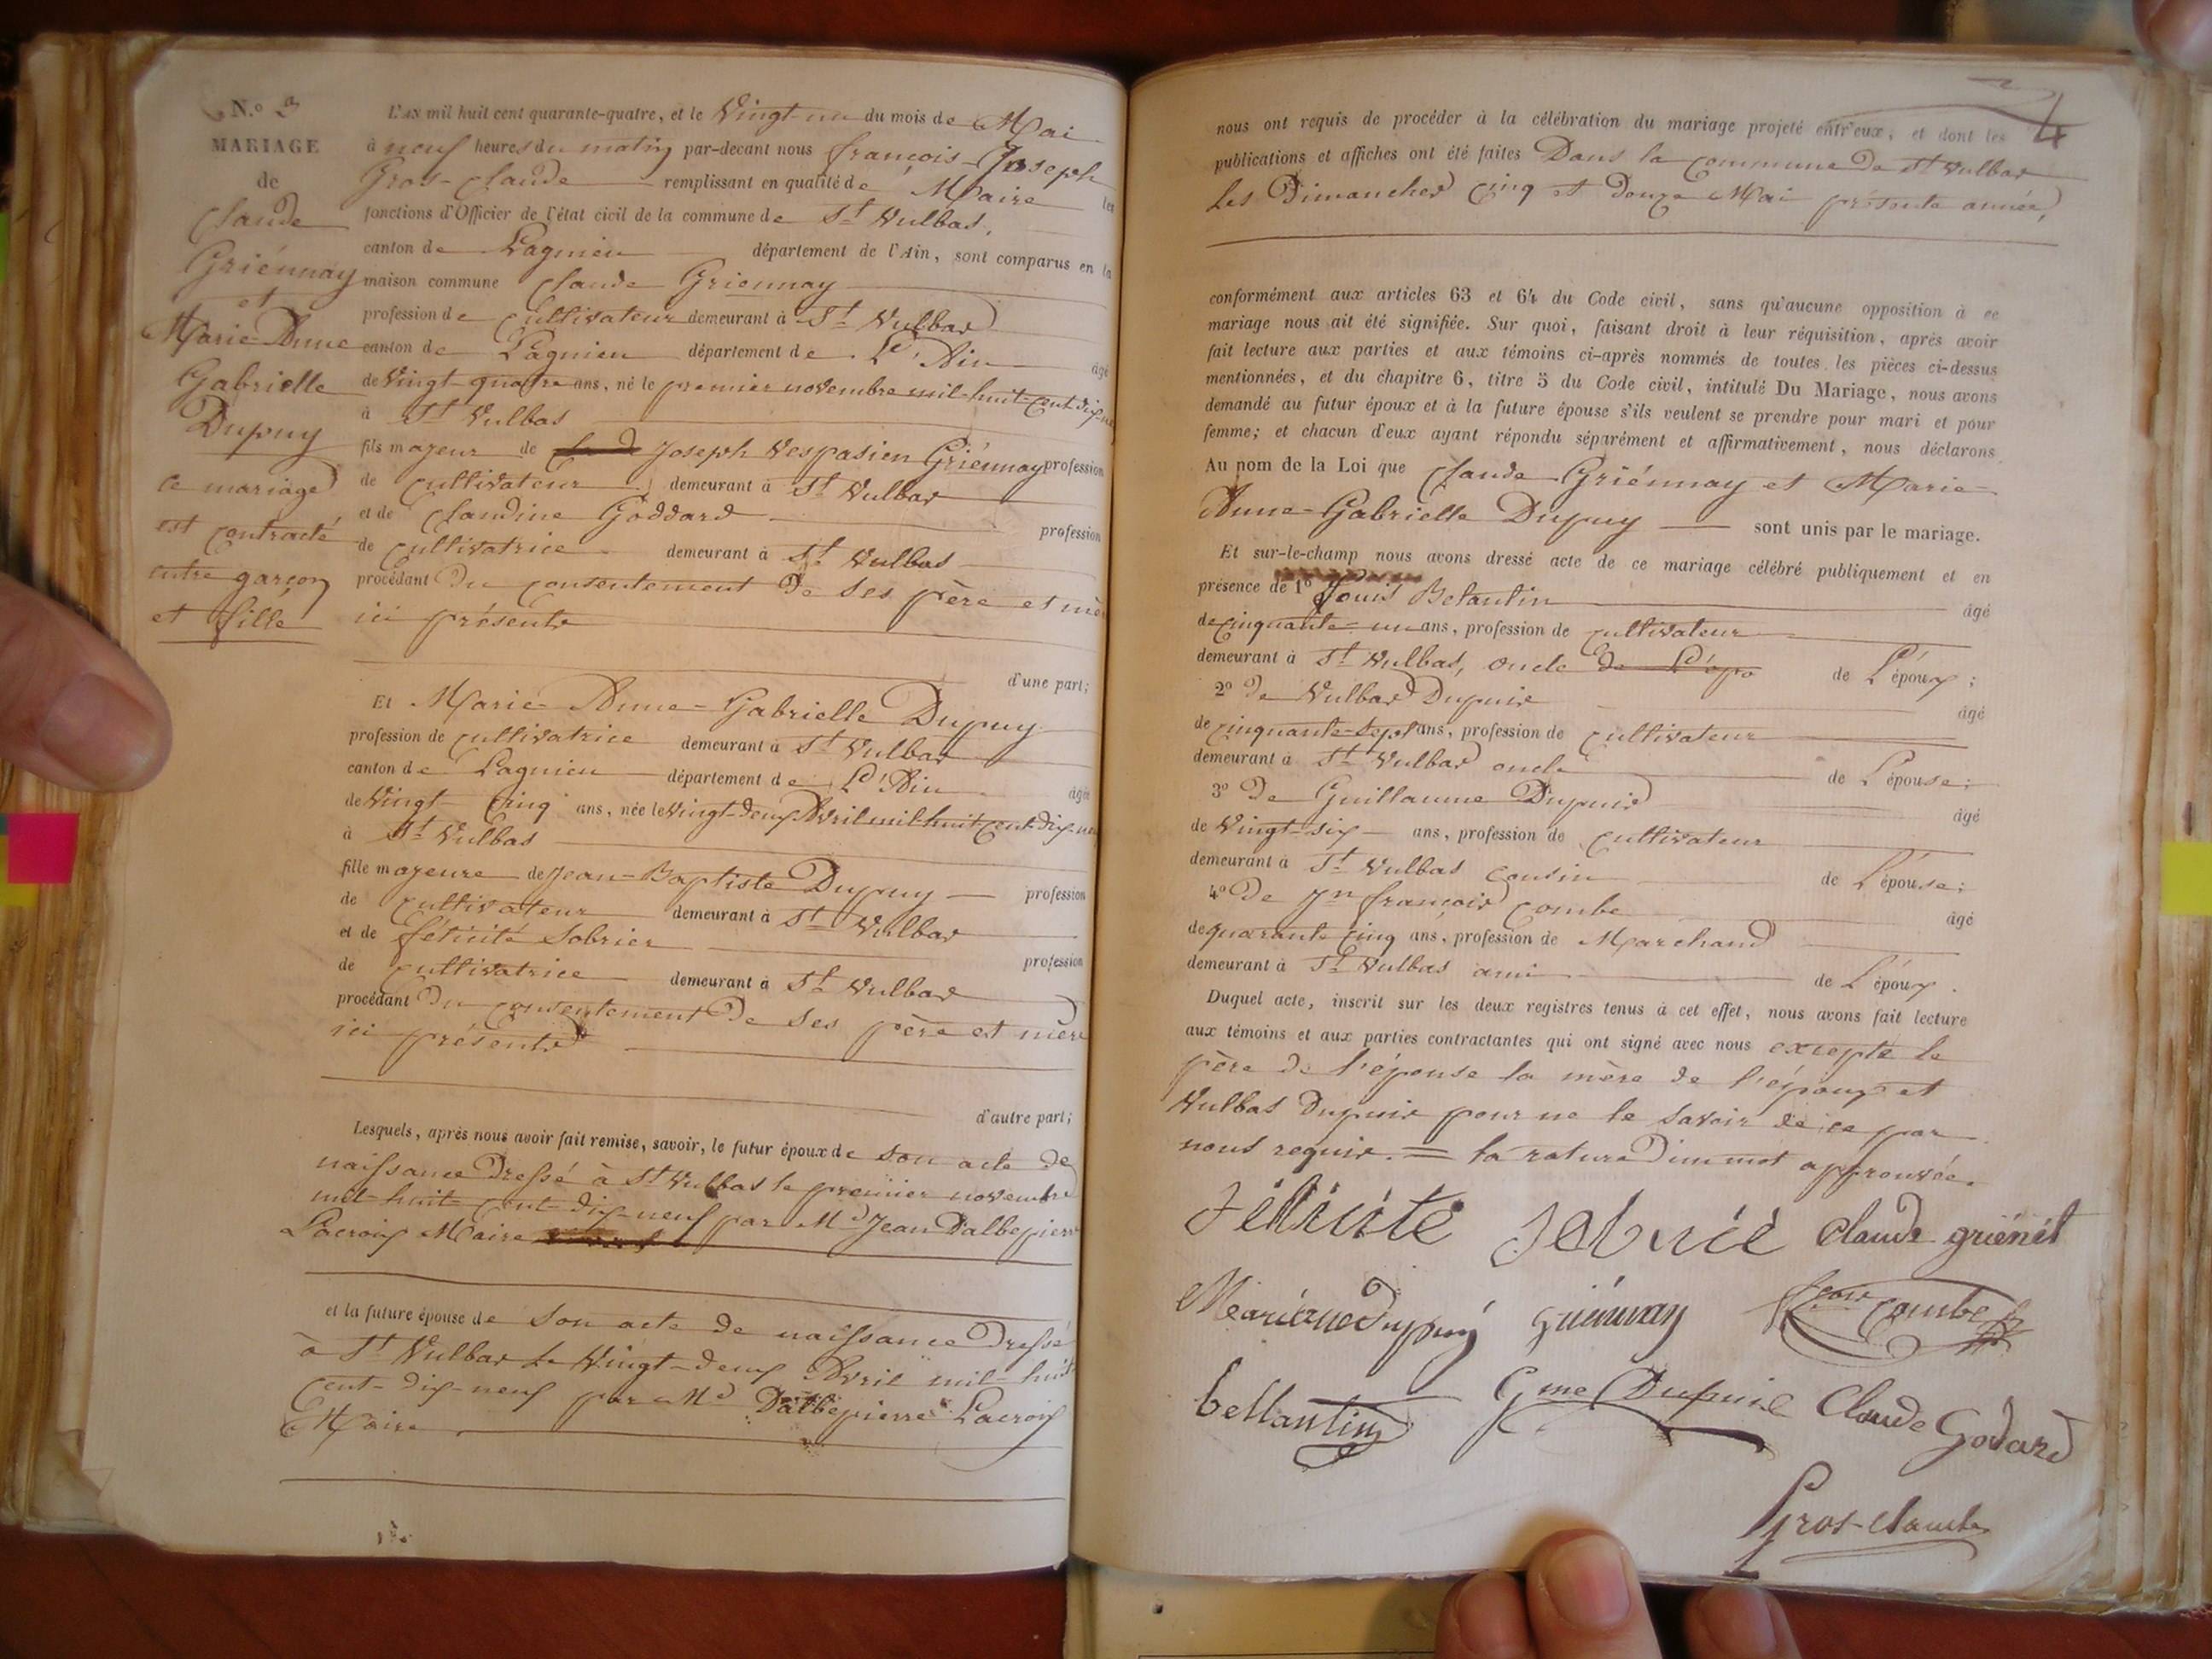 N.º 3
MARIAGE
de
Claude
Griénnay
et
Marie-Anne
Gabrielle
Dupuy
ce mariage
est contracté
entre garçon
et fille
L'AN mil huit cent quarante-quatre, et le Vingt-un du mois de Mai
à neuf heures du matin par-devant nous françois-Joseph
Gros-Claude remplissant en qualité de Maire les
fonctions d'Officier de l'état civil de la commune de St Vulbas.
canton de Lagnieu département de l'Ain, sont comparus en la
maison commune Claude Griennay
profession de Cultivateur demeurant à St Vulbas
canton de Lagnieu département de L'Ain âgé
de Vingt-quatre ans, né le premier novembre mil-huit-cent dix-neuf
à St Vulbas
fils majeur de Joseph Vespasien Griénnay profession
de cultivateur demeurant à St Vulbas
et de Claudine Goddard profession
de cultivatrice demeurant à St Vulbas
procédant Du consentement De ses père et mère
ici présents
d'une part;
Et Marie-Anne-Gabrielle Dupuy
profession de cultivatrice demeurant à St Vulbas
canton de Lagnieu département de L'Ain âgée
de Vingt-Cinq ans, née le Vingt-deux Avril mil huit cent-dix-neuf
à St Vulbas
fille majeure de Jean-Baptiste Dupuy profession
de cultivateur demeurant à St Vulbas
et de félicité Sobrier profession
de cultivatrice demeurant à St Vulbas
procédant Du consentement De ses père et mère
ici présents
d'autre part;
Lesquels, après nous avoir fait remise, savoir, le futur époux de son acte de
naissance Dressé à St Vulbas le premier novembre
mil-huit-cent-dix-neuf par Mr Jean Dalbepierre
Lacroix Maire
et la future épouse de son acte de naissance Dressé
à St Vulbas le Vingt-deux Avril mil-huit
Cent-dix-neuf par Mr Dalbepierre Lacroix
Maire
nous ont requis de procéder à la célébration du mariage projeté entr'eux, et dont les
publications et affiches ont été faites Dans la commune De St Vulbas
Les Dimanches Cinq et Douze Mai présente année,
conformément aux articles 63 et 64 du Code civil, sans qu'aucune opposition à ce
mariage nous ait été signifiée. Sur quoi, faisant droit à leur réquisition, après avoir
fait lecture aux parties et aux témoins ci-après nommés de toutes les pièces ci-dessus
mentionnées, et du chapitre 6, titre 5 du Code civil, intitulé Du Mariage, nous avons
demandé au futur époux et à la future épouse s'ils veulent se prendre pour mari et pour
femme; et chacun d'eux ayant répondu séparément et affirmativement, nous déclarons
Au nom de la Loi que Claude Griénnay et Marie-
Anne-Gabrielle Dupuy sont unis par le mariage.
Et sur-le-champ nous avons dressé acte de ce mariage célébré publiquement et en
présence de 1º Louis Belantin âgé
de cinquante-un ans, profession de cultivateur
demeurant à St Vulbas, oncle de L'épo de L'époux;
2º De Vulbas Dupuis âgé
de cinquante-sept ans, profession de cultivateur
demeurant à St Vulbas oncle de L'épouse;
3º De Guillaume Dupuis âgé
de Vingt-six ans, profession de cultivateur
demeurant à St Vulbas cousin de L'épouse;
4º De Jn françois Combe âgé
de quarante cinq ans, profession de Marchand
demeurant à St Vulbas ami de L'époux.
Duquel acte, inscrit sur les deux registres tenus à cet effet, nous avons fait lecture
aux témoins et aux parties contractantes qui ont signé avec nous excepté le
père de l'épouse la mère de l'époux et
Vulbas Dupuis pour ne le savoir de ce par
nous requis. = la rature d'un mot approuvée.
Félicité Sobrié Claude griénét
Mariane Dupuy Griénnay Combe
bellantin Gme Dupuis Claude Godard
Gros-Claude